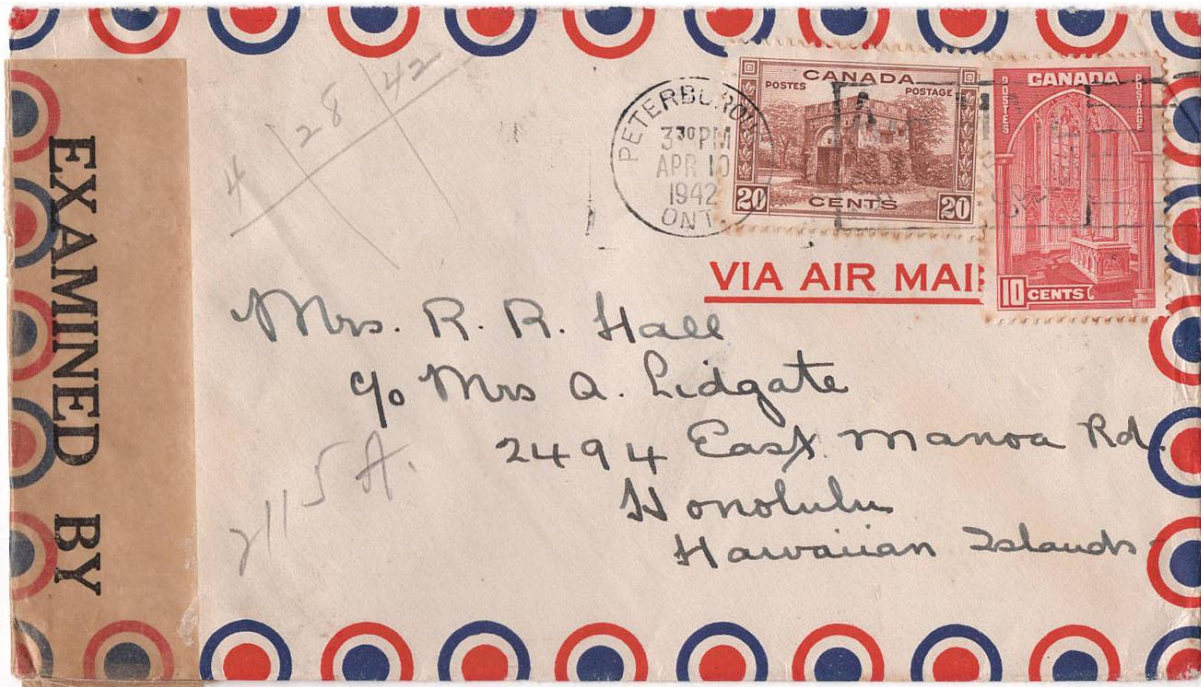 EXAMINED BY
4 28 42
PETERBORO
3 30 PM
APR 10
1942
ONT
CANADA
POSTES POSTAGE
20 CENTS 20
CANADA
POSTES POSTAGE
10 CENTS
VIA AIR MAI
Mrs. R. R. Hall
c/o Mrs A. Lidgate
2494 East Manoa Rd.
Honolulu
Hawaiian Islands
2115 A.